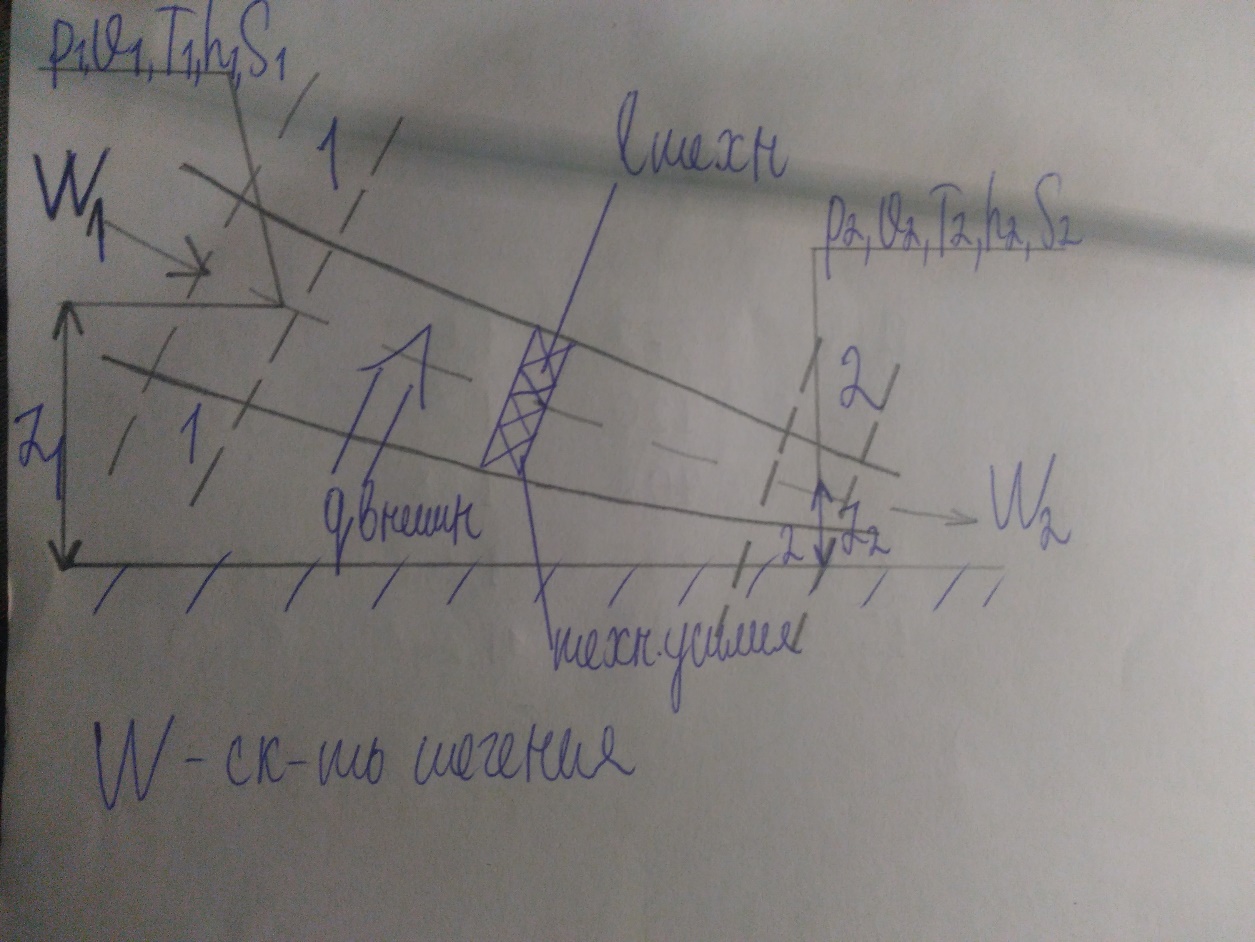 p₁,ϑ₁,T₁,h₁,S₁
1
lтехн
W₁
p₂,ϑ₂,T₂,h₂,S₂
2
z₁
1
qвнешн
W₂
2
z₂
техн.усилия
W - ск-ть течения